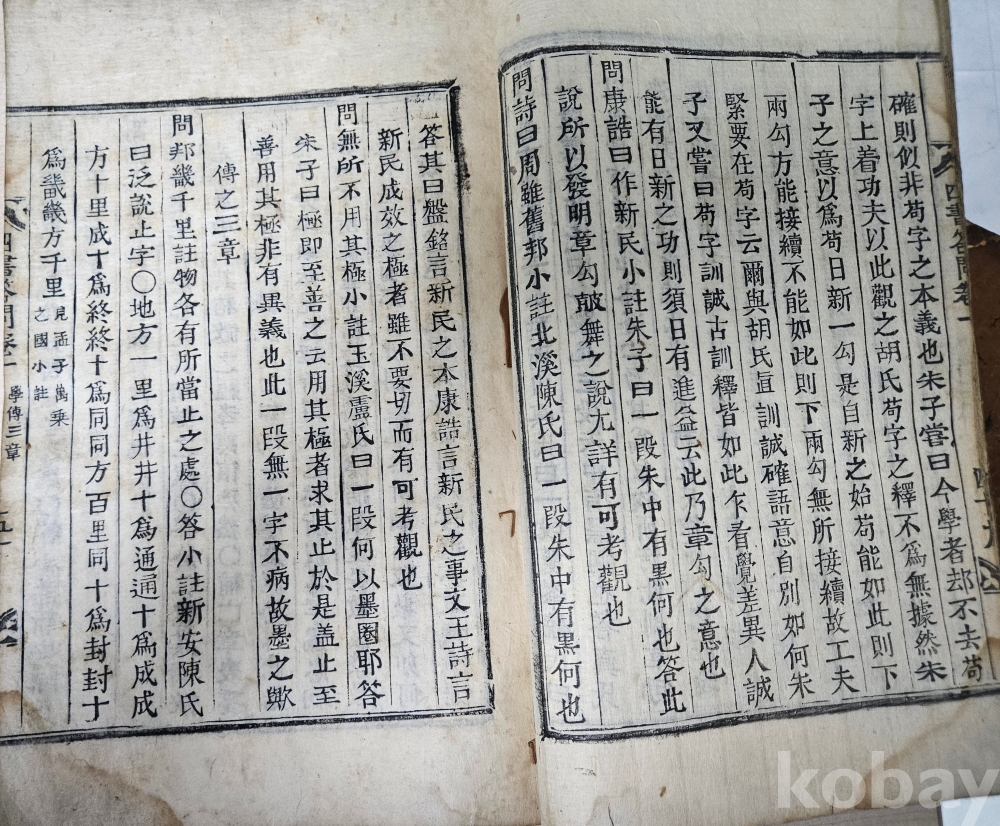 確則似非苟字之本義也朱子嘗曰今學者却不去苟
字上着功夫以此觀之胡氏苟字之釋不爲無據然朱
子之意以爲苟日新一勾是自新之始苟能如此則下
兩勾方能接續不能如此則下兩勾無所接續故工夫
緊要在苟字云爾與胡氏直訓誠確語意自別如何朱
子又嘗曰苟字訓誠古訓釋皆如此乍看覺差異人誠
能有日新之功則須日有進益云此乃章勾之意也
問康誥曰作新民小註朱子曰一段朱中有黑何也答此
說所以發明章勾鼓舞之說尤詳有可考觀也
問詩曰周雖舊邦小註北溪陳氏曰一段朱中有黑何也
四書答問卷一
答其曰盤銘言新民之本康誥言新民之事文王詩言
新民成效之極者雖不要切而有可考觀也
問無所不用其極小註玉溪盧氏曰一段何以墨圈耶答
朱子曰極即至善之云用其極者求其止於是盖止至
善用其極非有異義也此一段無一字不病故墨之歟
傳之三章
問邦畿千里註物各有所當止之處○答小註新安陳氏
曰泛說止字○地方一里爲井井十爲通通十爲成成
方十里成十爲終終十爲同同方百里同十爲封封十
爲畿畿方千里 見孟子萬乘
之國小註
四書答問卷一 學傳三章
kobay